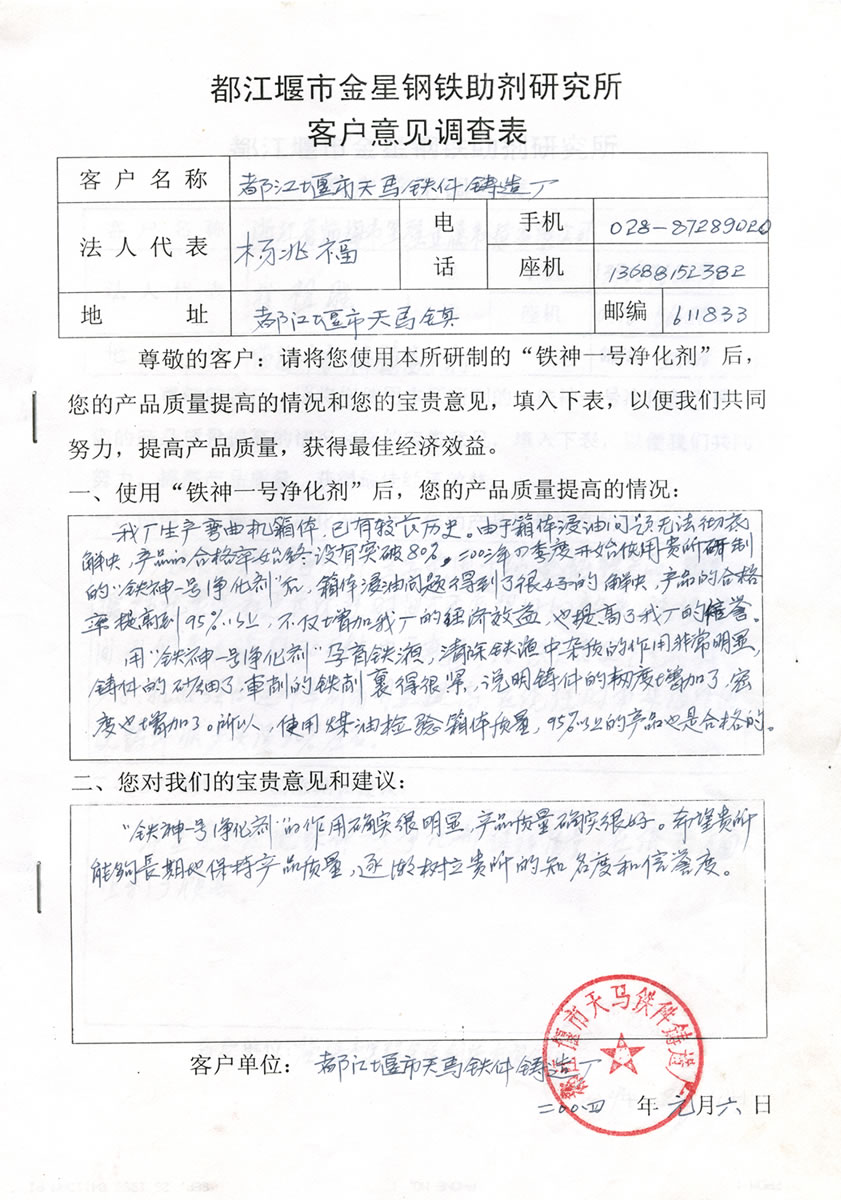 都江堰市金星钢铁助剂研究所
客户意见调查表
客户名称 都江堰市天马铁件铸造厂
法人代表 杨兆福 电话 手机 028-87289020
座机 13688152382
地址 都江堰市天马镇 邮编 611833
尊敬的客户：请将您使用本所研制的“铁神一号净化剂”后，
您的产品质量提高的情况和您的宝贵意见，填入下表，以便我们共同
努力，提高产品质量，获得最佳经济效益。
一、使用“铁神一号净化剂”后，您的产品质量提高的情况：
我厂生产弯曲机箱体，已有较长历史。由于箱体浸油问题无法彻底
解决，产品的合格率始终没有突破80%。二00三年四季度开始使用贵所研制
的“铁神一号净化剂”后，箱体浸油问题得到了很好的解决，产品的合格
率提高到95%以上，不仅增加我厂的经济效益，也提高了我厂的信誉。
用“铁神一号净化剂”孕育铁液，清除铁液中杂质的作用非常明显，
铸件的砂细了，車削的铁削裹得很紧，说明铸件的韧度增加了，密
度也增加了。所以，使用煤油检验箱体质量，95%以上的产品也是合格的。
二、您对我们的宝贵意见和建议：
“铁神一号净化剂”的作用确实很明显，产品质量确实很好。希望贵所
能够長期地保持产品质量，逐渐树立贵所的知名度和信誉度。
都江堰市天马铁件铸造厂
客户单位： 都江堰市天马铁件铸造厂
二00四 年 元月六日